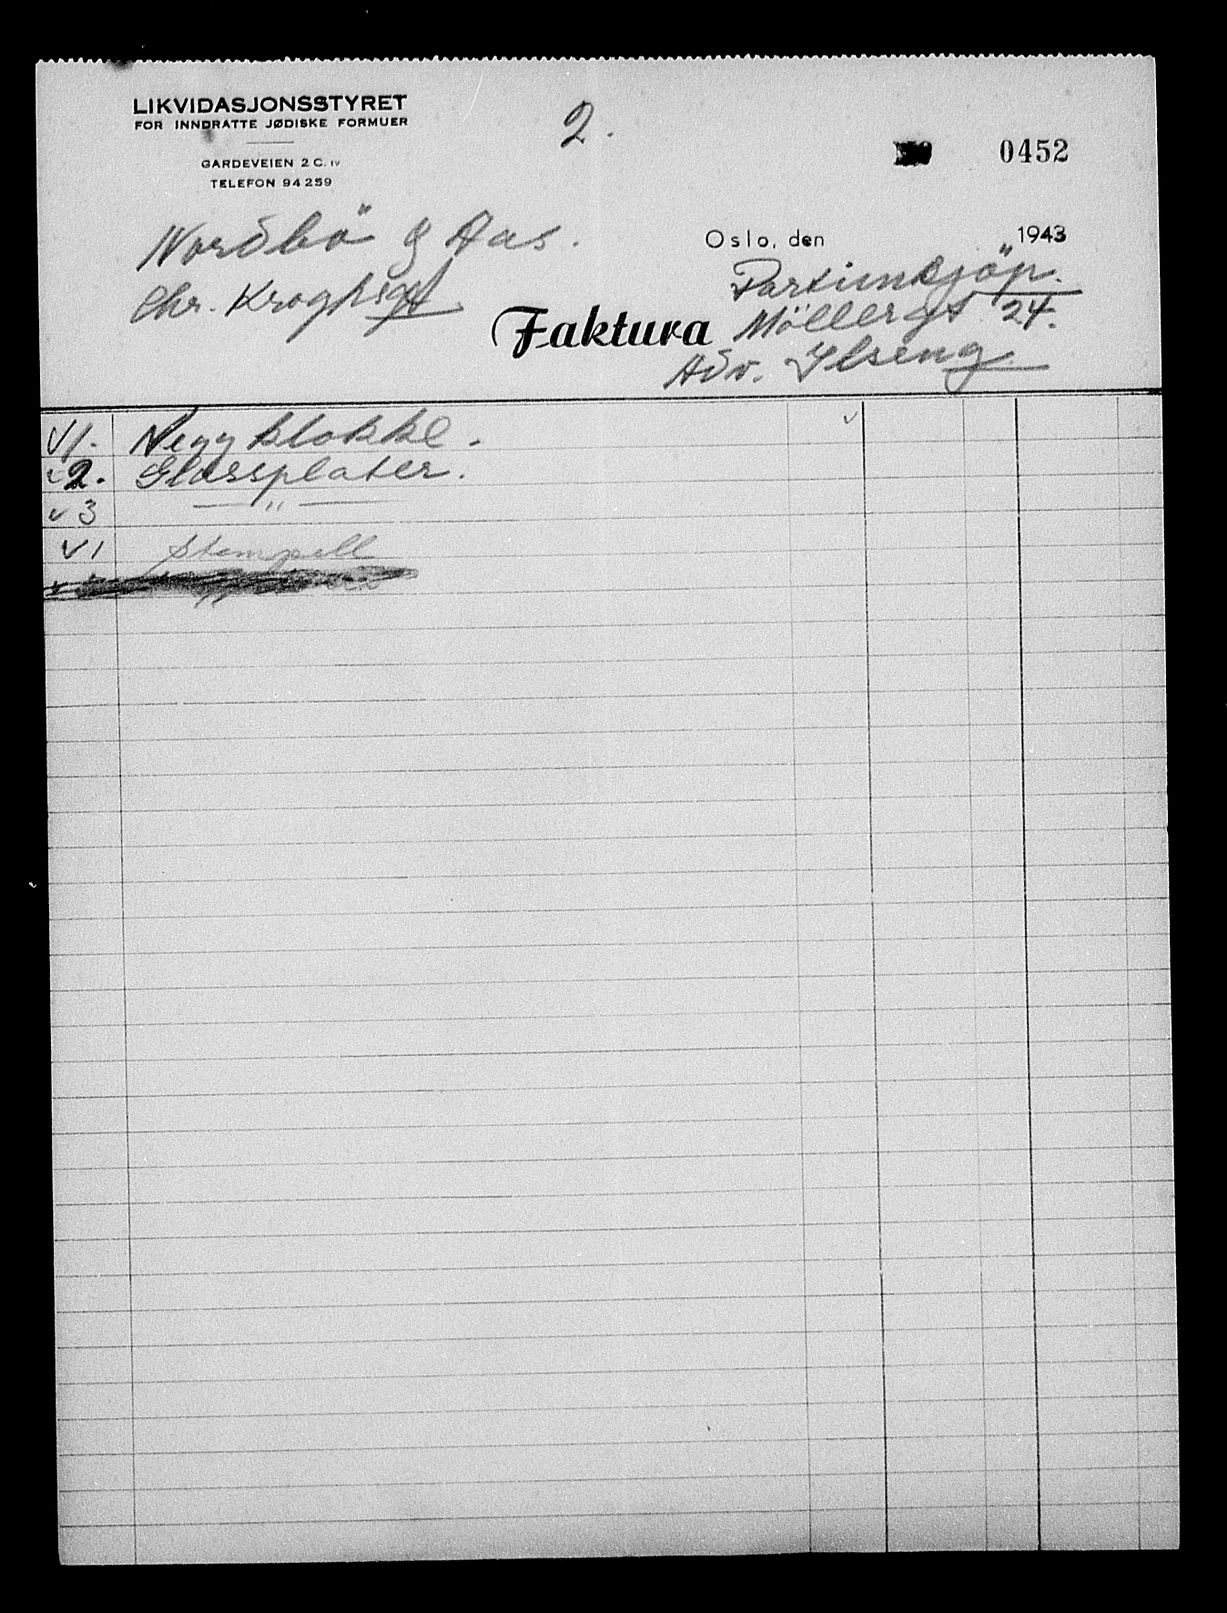 LIKVIDASJONSSTYRET
FOR INNDRATTE JØDISKE FORMUER
GARDEVEIEN 2 C. IV
TELEFON 94259
2.
0452
Nordbö & Aas.
Chr. Kroghsgt
Oslo, den 1943
Partiinkjöp.
Möllergt 24.
Adv. Ilseng.
Faktura
√1. Veggklokke.
√2. Glassplater.
√3 — " —
√1 Stempell